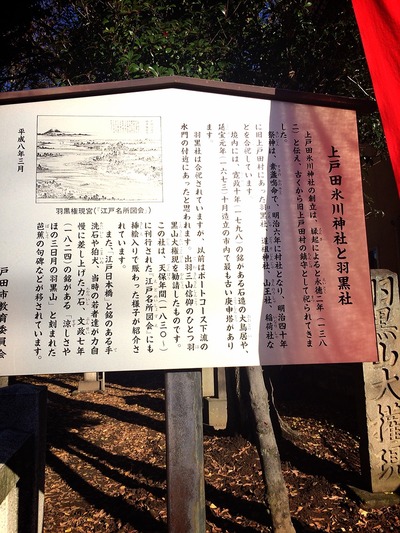 上戸田氷川神社と羽黒社
上戸田氷川神社の創立は、縁起によると永徳二年(一三八
二)と伝え、古くから旧上戸田村の鎮守として祀られてきま
した。
祭神は、素盞嗚命で、明治六年に村社となり、明治四十年
に旧上戸田村にあった羽黒社、道祖神社、山王社、稲荷社な
どを合祀しています。
境内には、寛政十年(一七九八)の銘がある石造の大鳥居や、
延宝元年(一六七三)十月造立の市内で最も古い庚申塔があり
ます。
羽黒社は合祀されていますが、以前はボートコース下流の
水門の付近にあったと思われます。出羽三山信仰のひとつ羽
黒山大権現を勧請したものです。
この社は、天保年間(一八三〇〜)
に刊行された「江戸名所図会」にも
挿絵入りで賑わった様子が紹介さ
れています。
また、江戸日本橋と銘のある手
洗石や狛犬、当時の若者達が力自
慢に差し上げた力石、文政七年
(一八二四)銘がある「涼しさや
ほの三日月の羽黒山」と刻まれた
芭蕉の句碑などが移されています。
平成八年三月
戸田市教育委員会
羽黒権現宮(「江戸名所図会」)
羽黒山大権現